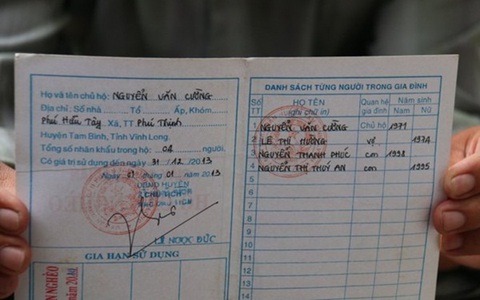 Họ và tên chủ hộ: NGUYỄN VĂN CƯỜNG
Địa chỉ: Số nhà Tổ Ấp, Khóm
Phú Hữu Tây Xã, TT Phú Thịnh
Huyện Tam Bình, Tỉnh Vĩnh Long.
Tổng số nhân khẩu trong hộ: 04 người.
Có giá trị sử dụng đến 31/12/2013
Ngày 31 tháng 01 năm 2013
CHỦ TỊCH
LÊ NGỌC ĐỨC
GIA HẠN SỬ DỤNG
NGHÈO
DANH SÁCH TỪNG NGƯỜI TRONG GIA ĐÌNH
Số TT HỌ TÊN (ghi chữ in) Quan hệ gia đình Năm sinh Nam Nữ
1 NGUYỄN VĂN CƯỜNG Chủ hộ 1971
2 LÊ THỊ HƯỜNG vợ 1974
3 NGUYỄN THANH PHÚC con 1998
4 NGUYỄN THỊ THÚY AN con 1995
5
6
7
8
9
10
11
12
13
14